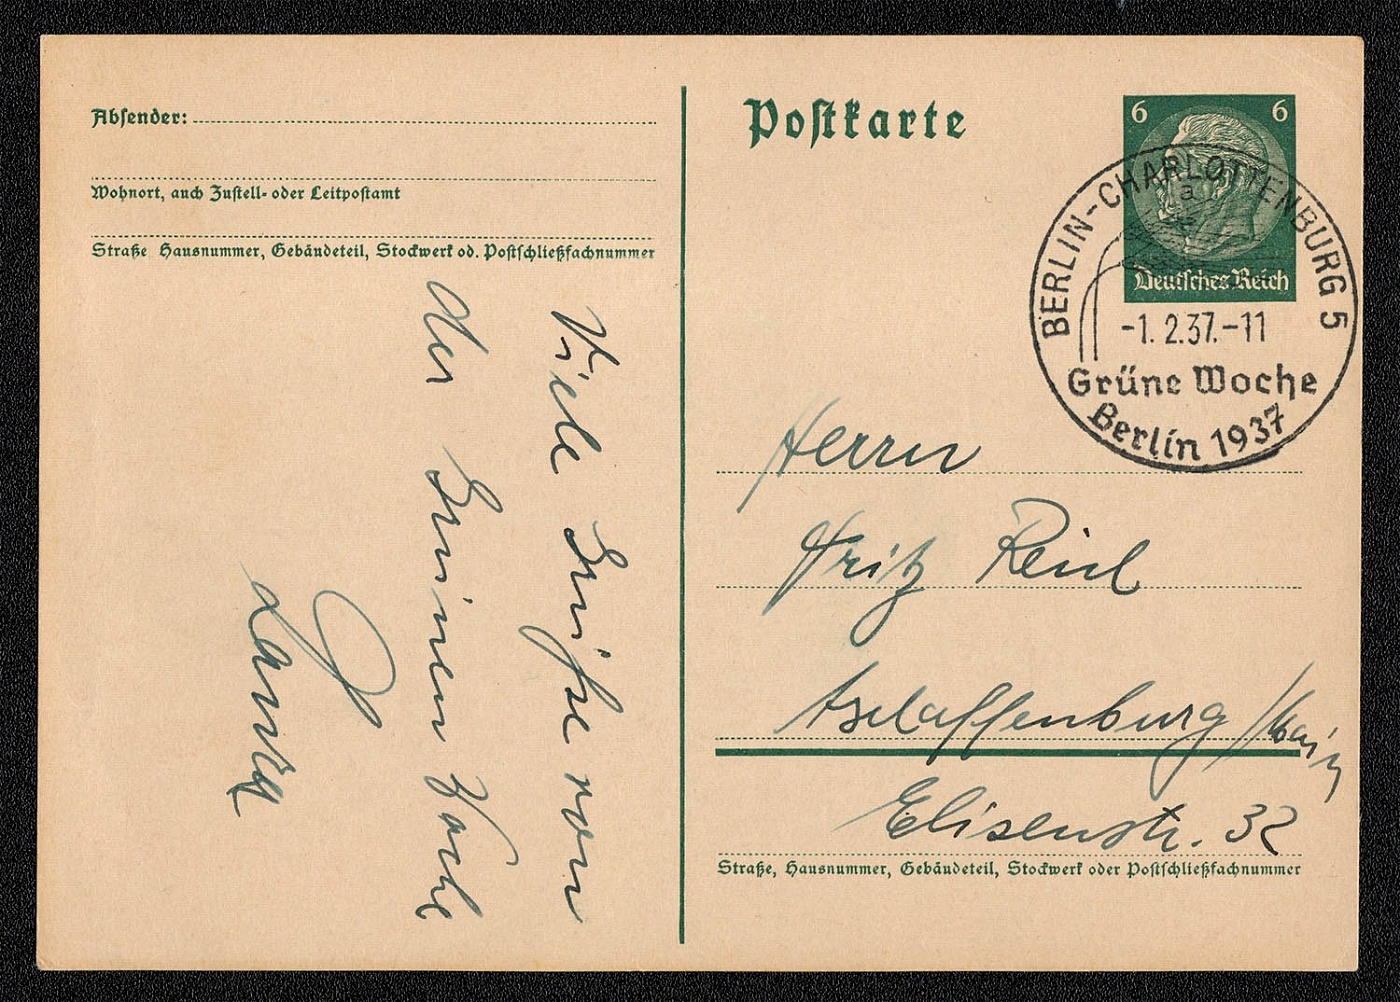 Absender:
Wohnort, auch Zustell- oder Leitpostamt
Straße Hausnummer, Gebäudeteil, Stockwerk od. Postschließfachnummer
Viele Grüße von
der Grünen Woche
Postkarte
6 6
Deutsches Reich
BERLIN-CHARLOTTENBURG 5
a
-1. 2.37.-11
Grüne Woche
Berlin 1937
Herrn
Fritz
Aschaffenburg / Main
Elisenstr. 32
Straße, Hausnummer, Gebäudeteil, Stockwerk oder Postschließfachnummer